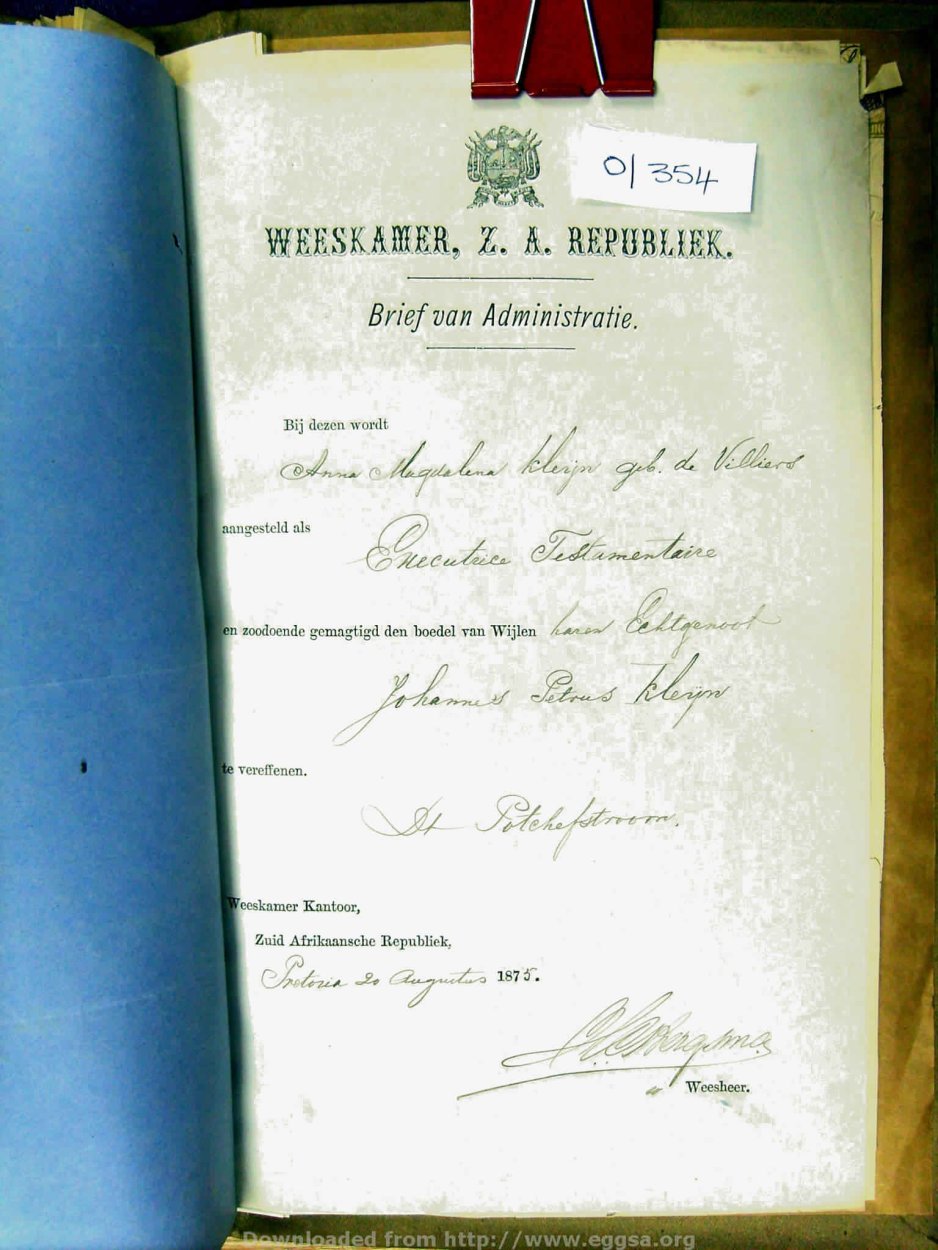 O/354
WEESKAMER, Z. A. REPUBLIEK.
Brief van Administratie.
Bij dezen wordt
Anna Magdalena Kleijn geb. de Villiers
aangesteld als
Executrice Testamentaire
en zoodoende gemagtigd den boedel van Wijlen haren Echtgenoot
Johannes Petrus Kleijn
te vereffenen.
Dt Potchefstroom.
Weeskamer Kantoor,
Zuid Afrikaansche Republiek,
Pretoria 20 Augustus 1875.
Weesheer.
Downloaded from http://www.eggsa.org